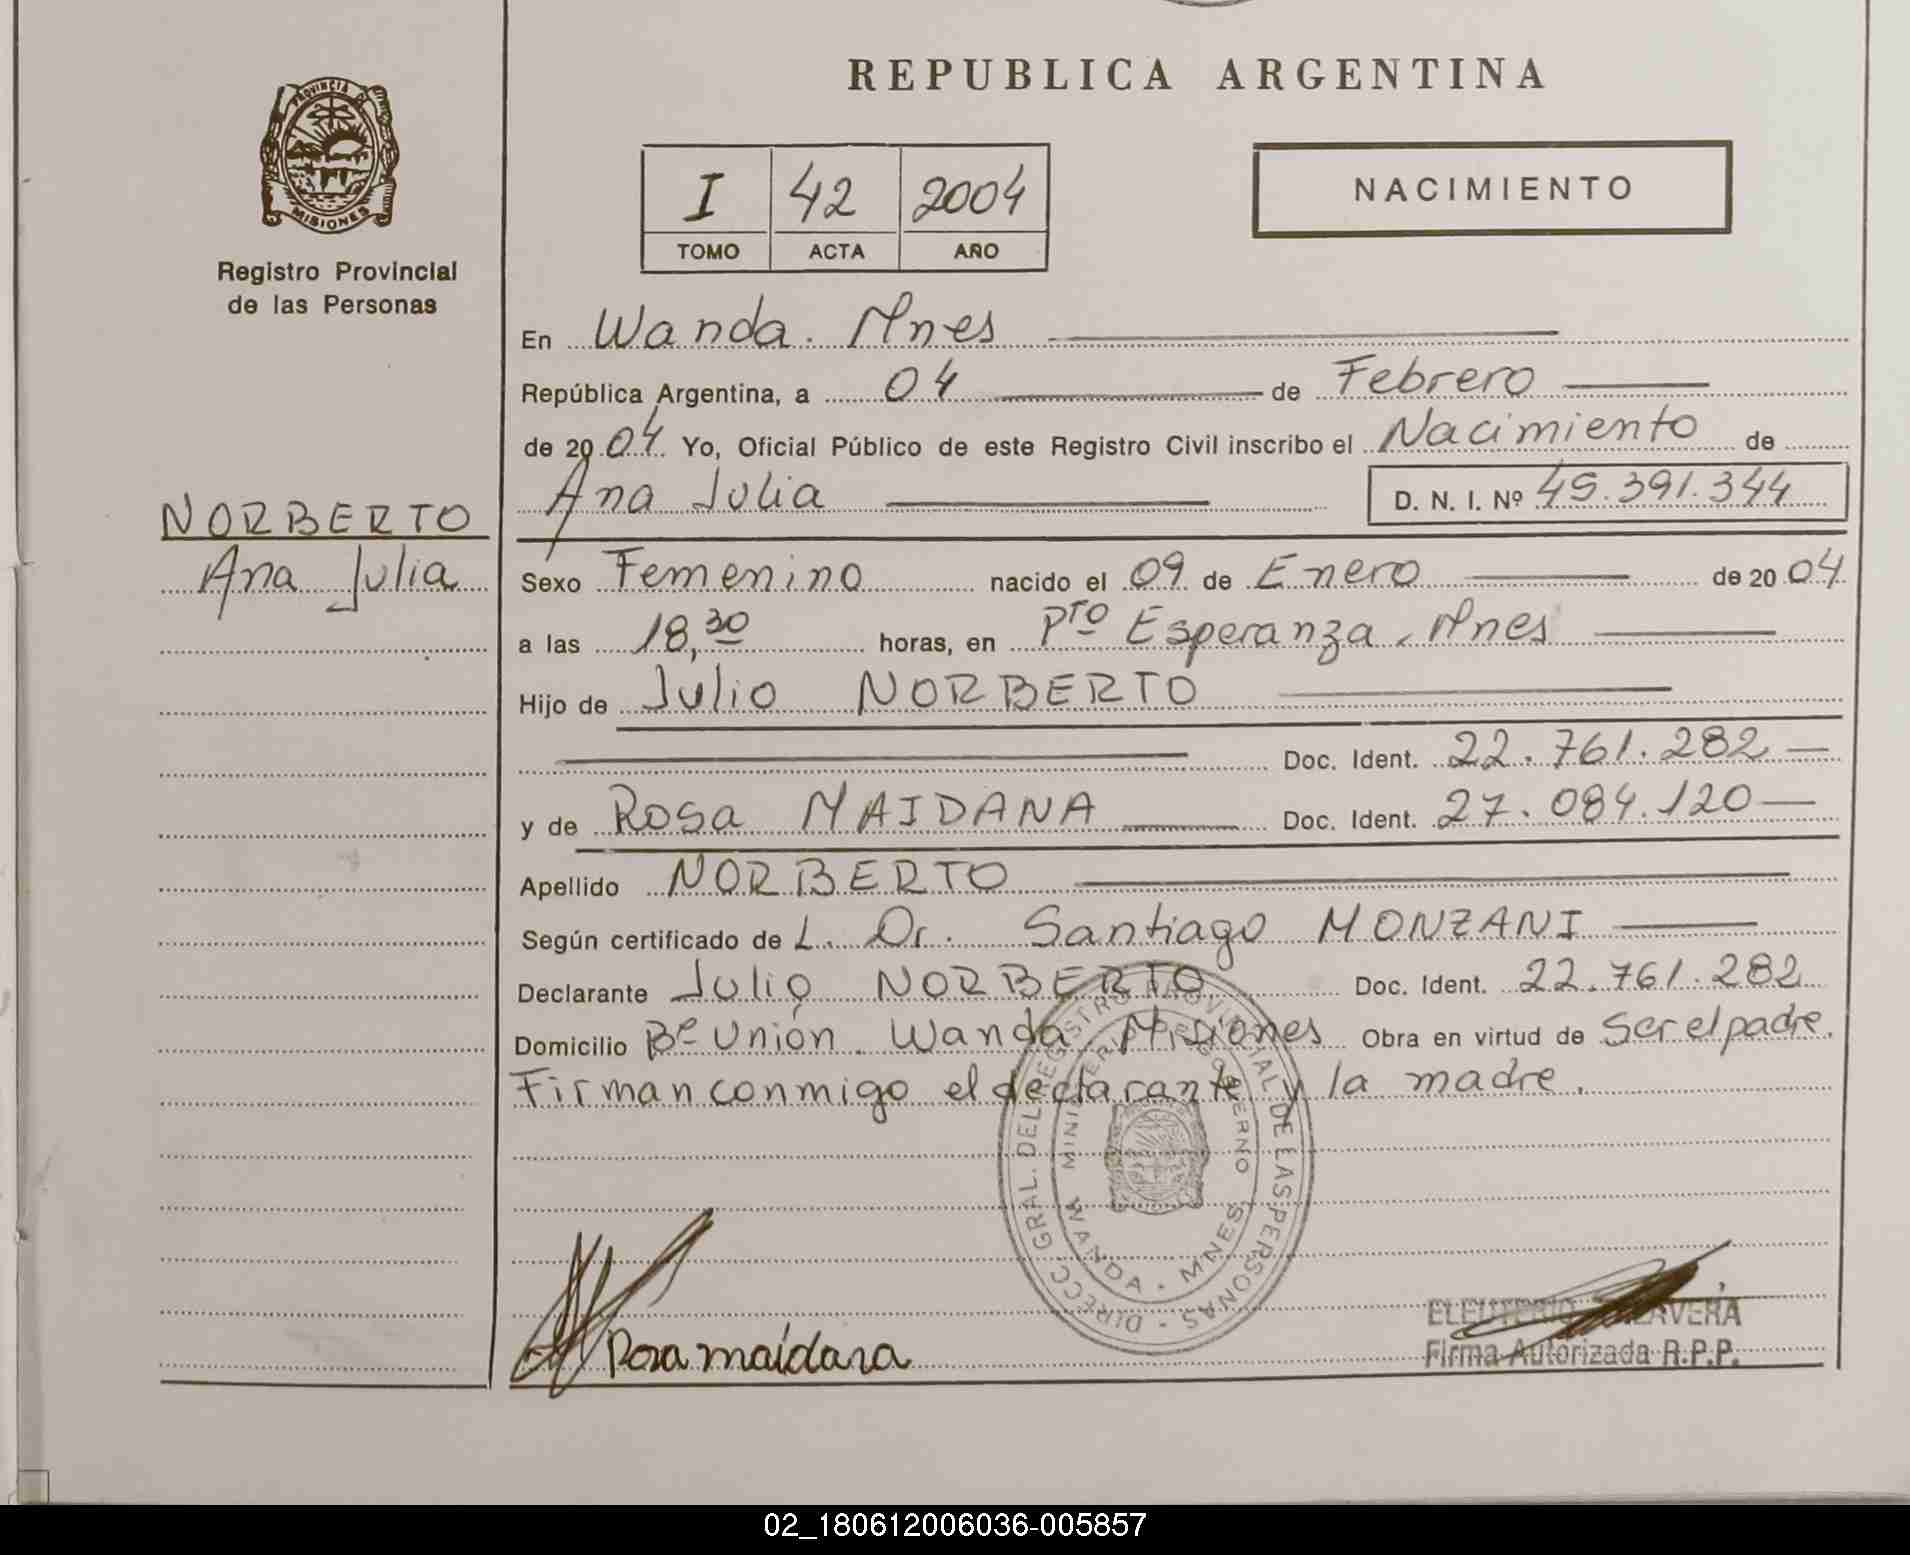 REPUBLICA ARGENTINA
PROVINCIA DE
MISIONES
Registro Provincial
de las Personas
I 42 2004
TOMO ACTA AÑO
NACIMIENTO
En Wanda. Mnes
República Argentina, a 04 de Febrero
de 2004 Yo, Oficial Público de este Registro Civil inscribo el Nacimiento de
Ana Julia D. N. I. Nº 45.391.344
NORBERTO
Ana Julia
Sexo Femenino nacido el 09 de Enero de 2004
a las 18,30 horas, en Pto Esperanza. Mnes
Hijo de Julio NORBERTO
Doc. Ident. 22.761.282
y de Rosa MAIDANA Doc. Ident. 27.084.120
Apellido NORBERTO
Según certificado de L. Dr. Santiago MONZANI
Declarante Julio NORBERTO Doc. Ident. 22.761.282
Domicilio Bº Unión. Wanda, Misiones Obra en virtud de Ser el padre.
Firman conmigo el declarante y la madre.
DIRECC. GRAL. DEL REGISTRO PROVINCIAL DE LAS PERSONAS
MINISTERIO DE GOBIERNO
WANDA - MNES
Rosa maidana
ELEUTERIO TALAVERA
Firma Autorizada R.P.P.
02_180612006036-005857